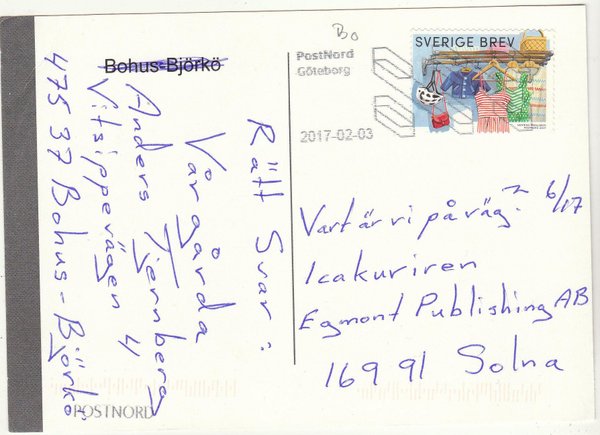 Bohus-Björkö
Rätt Svar:
Vårgårda
Anders Tjernberg
Vitsippevägen 4
475 37 Bohus-Björkö
Bo
PostNord
Göteborg
2017-02-03
SVERIGE BREV
Vart är vi på väg? 6/17
Icakuriren
Egmont Publishing AB
169 91 Solna
POSTNORD